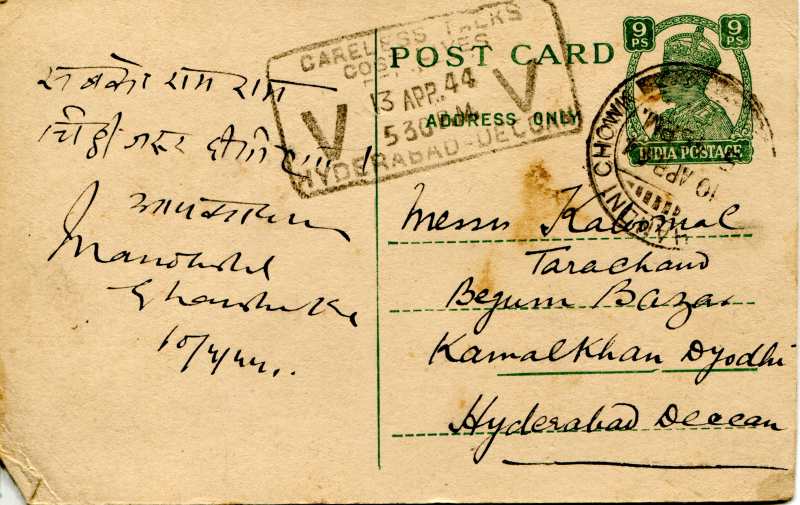 सबको राम राम
चिट्ठी जरूर
10/4/44.
CARELESS TALKS
COST LIVES
13 APR. 44
V V
5 30 P.M.
HYDERABAD-DECCAN
POST CARD
ADDRESS ONLY
9 9
PS PS
INDIA POSTAGE
CHOWK
10 APR
Messrs Kaloomal
Tarachand
Begum Bazar
Kamalkhan Dyodhi
Hyderabad Deccan